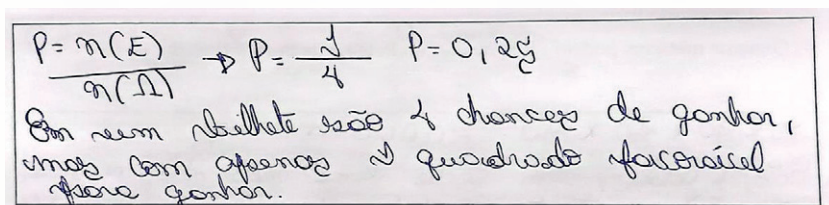 P = n(E) / n(Ω) → P = 1/4 P = 0,25
Em um bilhete são 4 chances de ganhar,
mas com apenas 1 quadrado favorável
para ganhar.